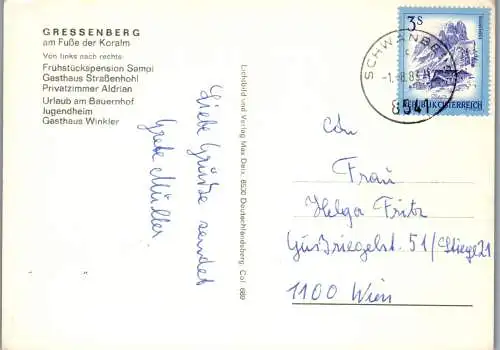 GRESSENBERG
am Fuße der Koralm
Von links nach rechts:
Frühstückspension Samoi
Gasthaus Straßenhohl
Privatzimmer Aldrian
Urlaub am Bauernhof
Jugendheim
Gasthaus Winkler
Liebe Grüße sendet
Grete Müller.
Lichtbild und Verlag Max Deix, 8530 Deutschlandsberg, Col. 689
3 S
REPUBLIK ÖSTERREICH
SCHWANBE
-1.-8.83
854
An
Frau
Helga Fritz
Gußriegelst. 51/Stiege 21
1100 Wien